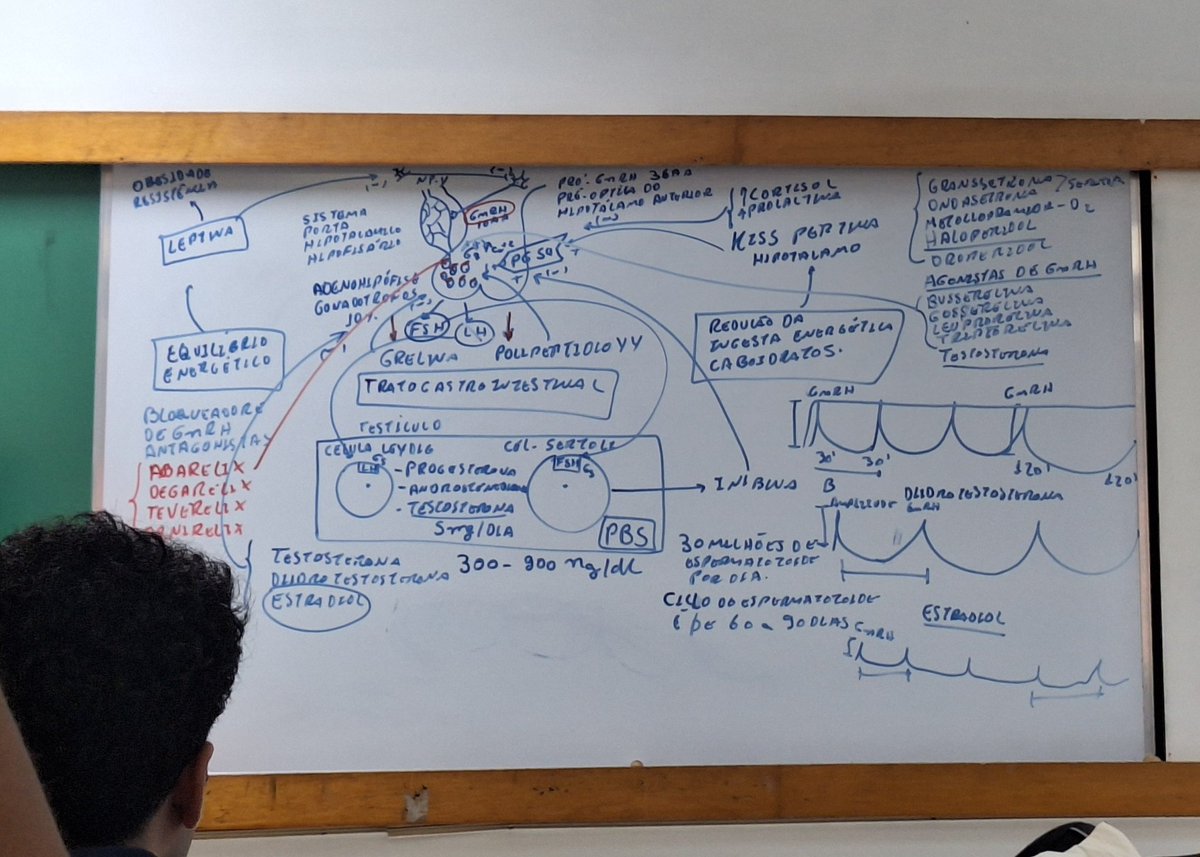 OBESIDADE
RESISTÊNCIA
LEPTINA
(-)
N.P.Y
(-)
SISTEMA
PORTA
HIPOTALÂMICO
HIPOFISÁRIO
GnRH
10AA
PRÓ-GnRH 36AA
PRÉ-OPTICA DO
HIPOTÁLAMO ANTERIOR
CORTISOL
PROLACTINA
KISS PEPTINA
HIPOTÁLAMO
GRANSSETRONA
ONDASETRONA
HALOPERIDOL
DROPERIDOL
AGONISTAS DE GnRH
BUSSERELINA
GOSSERELINA
LEUPRORELINA
TRIPTORELINA
TESTOSTERONA
ADENOHIPÓFISE
GONADOTROFOS
10%
(-)
FSH
LH
GRELINA
POLIPEPTIDIO YY
TRATO GASTROINTESTINAL
EQUILÍBRIO
ENERGÉTICO
REDUÇÃO DA
INGESTA ENERGÉTICA
CABOIDRATOS.
BLOQUEADORE
DE GnRH
ANTAGONISTAS
ABARELIX
DEGARELIX
TEVERELIX
TESTÍCULO
CÉLULA LEYDIG
LH
GS
- PROGESTERONA
- ANDROSTENEDIONA
- TESTOSTERONA
5mg/DIA
CÉL. SERTOLI
FSH
GS
PBS
INIBINA
TESTOSTERONA
DIIDROTESTOSTERONA
ESTRADIOL
300-900 ng/dL
30 MILHÕES DE
ESPERMATOZOIDE
POR DIA.
CICLO DO ESPERMATOZOIDE
É DE 60 a 90 DIAS
GnRH
GnRH
30'
30'
120'
120'
B
AMPLITUDE
DIIDROTESTOSTERONA
GnRH
ESTRADIOL
GnRH